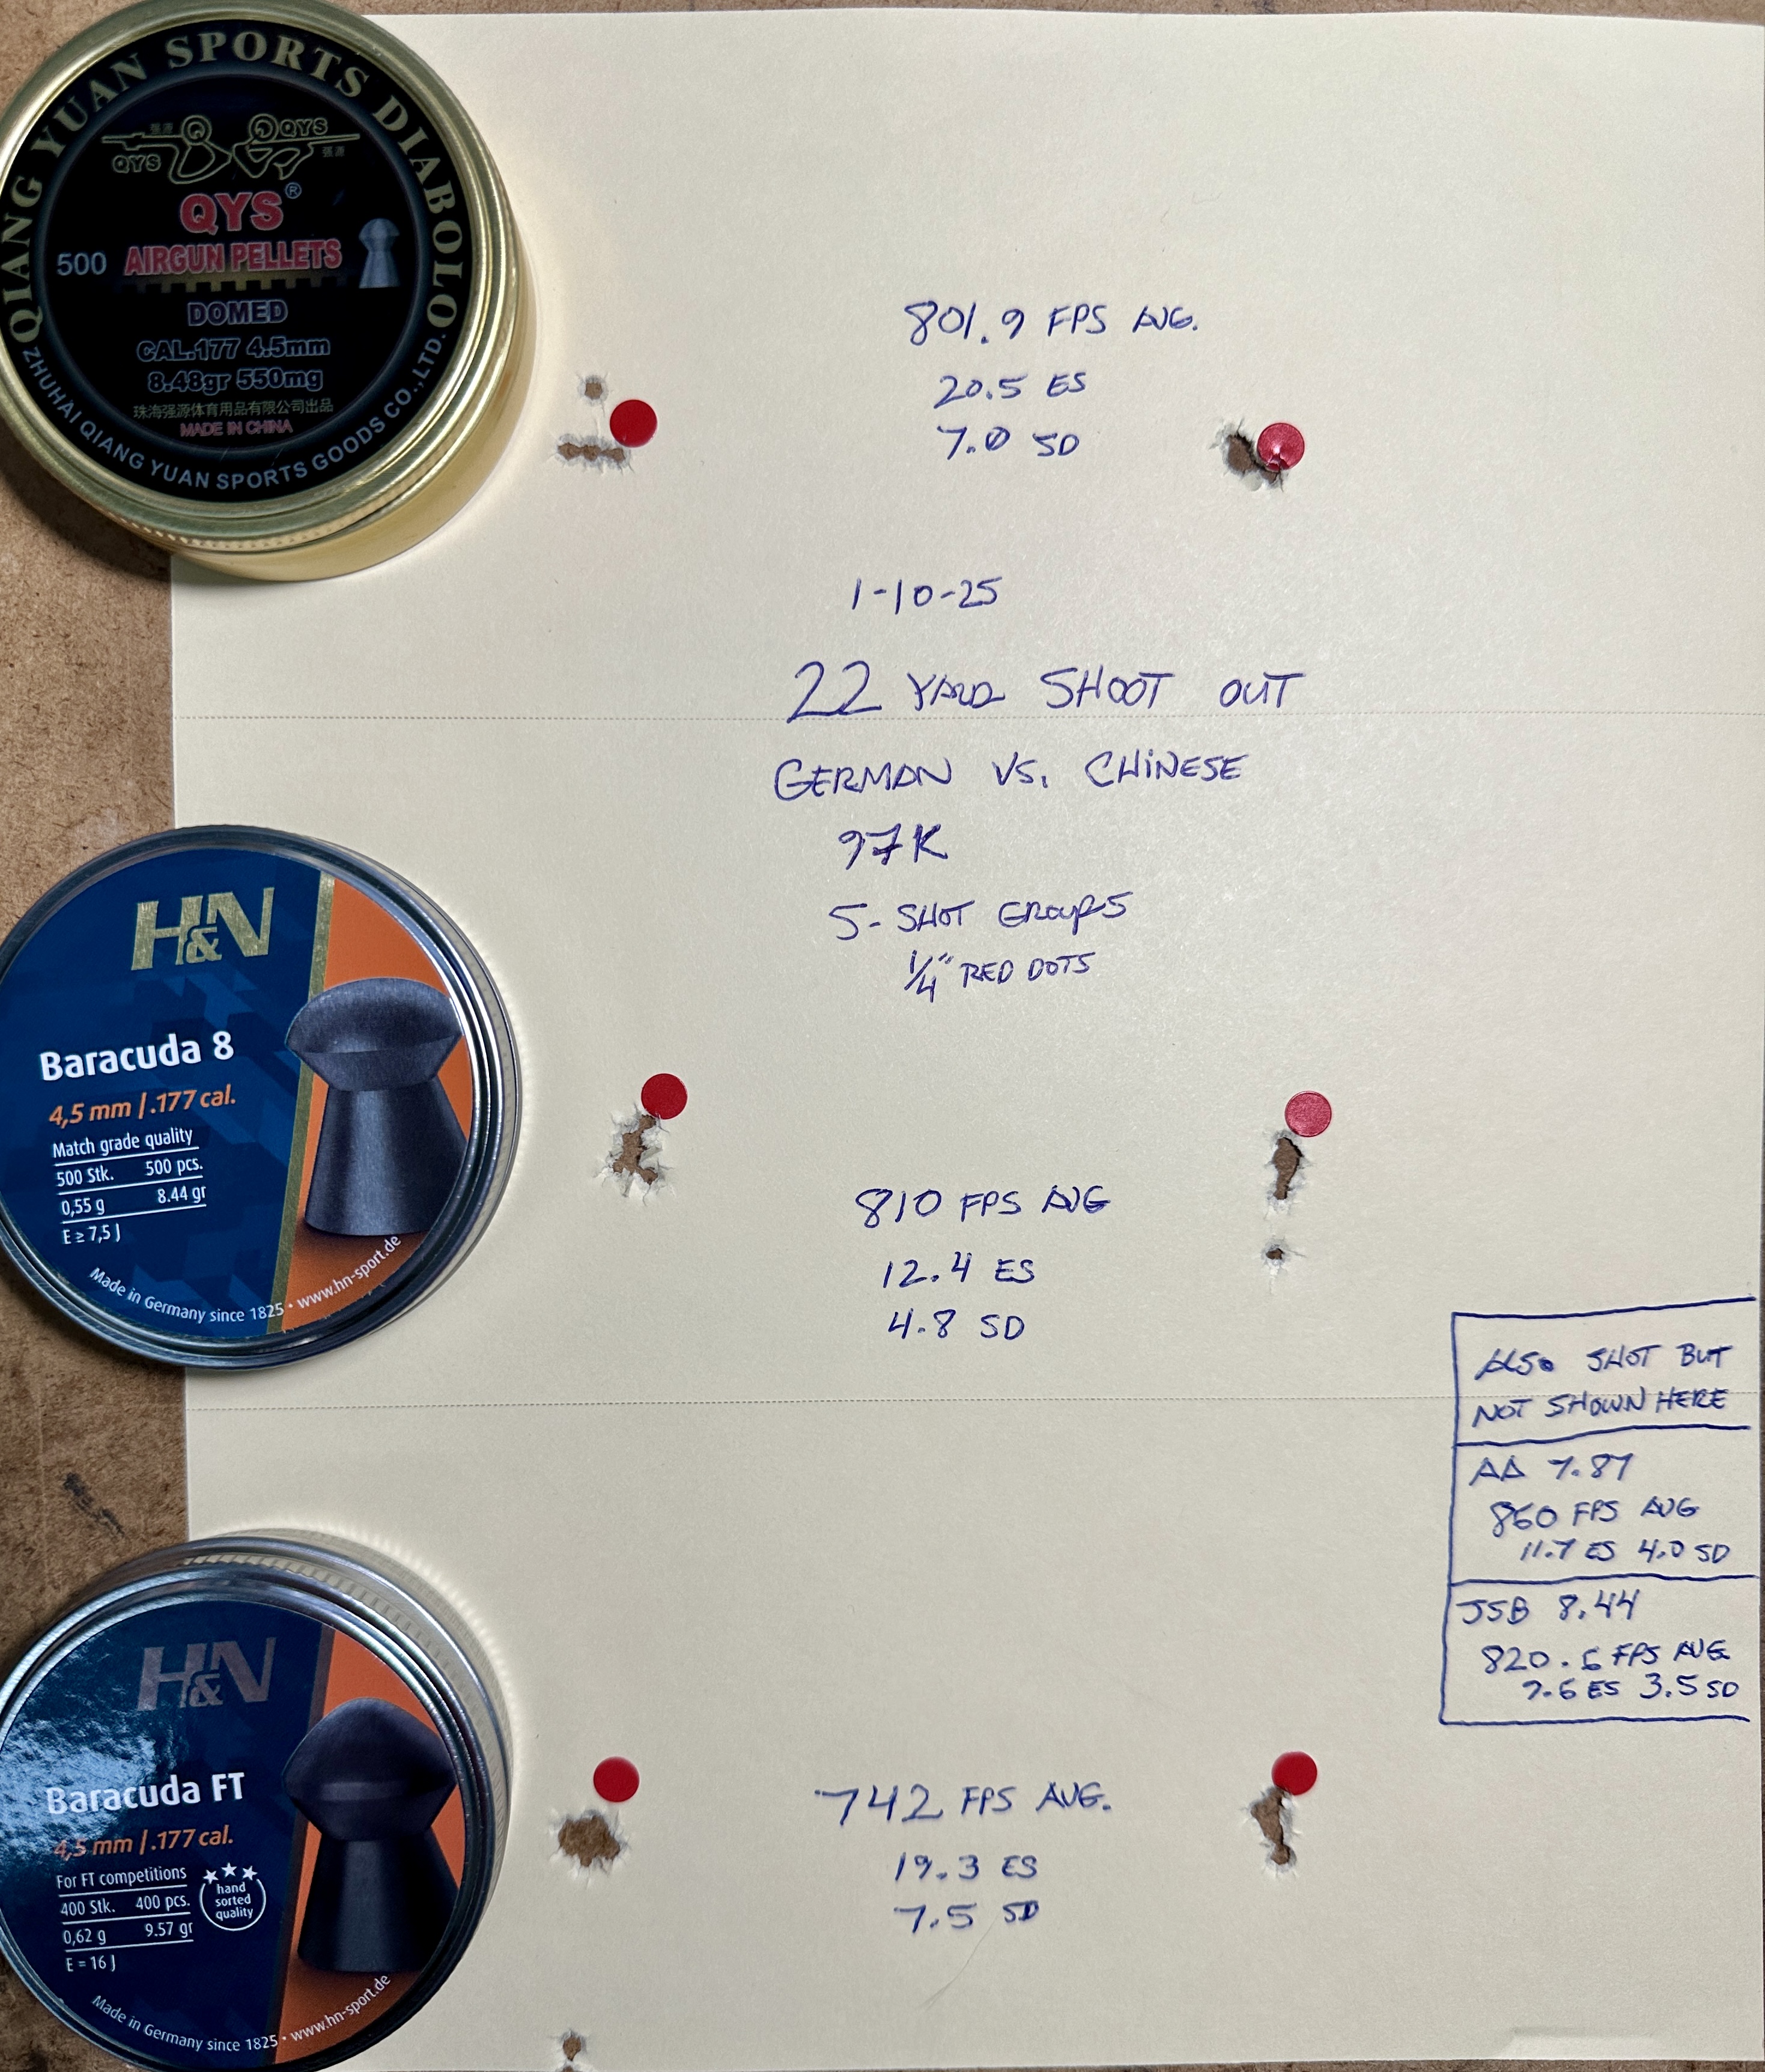 QIANG YUAN SPORTS DIABOLO
強源
QYS
QYS
強源
QYS®
500 AIRGUN PELLETS
DOMED
CAL.177 4.5mm
8.48gr 550mg
珠海强源体育用品有限公司出品
MADE IN CHINA
ZHUHAI QIANG YUAN SPORTS GOODS CO.,LTD.
801.9 FPS AVG.
20.5 ES
7.0 SD
1-10-25
22 YARD SHOOT OUT
GERMAN VS. CHINESE
97K
5-SHOT GROUPS
1/4" RED DOTS
H&N
Baracuda 8
4,5 mm | .177 cal.
Match grade quality
500 Stk. 500 pcs.
0,55 g 8.44 gr
E ≥ 7,5 J
Made in Germany since 1825 • www.hn-sport.de
810 FPS AVG
12.4 ES
4.8 SD
ALSO SHOT BUT
NOT SHOWN HERE
AA 7.87
860 FPS AVG
11.7 ES 4.0 SD
JSB 8.44
820.6 FPS AVG.
7.6 ES 3.5 SD
H&N
Baracuda FT
4,5 mm | .177 cal.
For FT competitions
400 Stk. 400 pcs.
0,62 g 9.57 gr
E = 16 J
hand
sorted
quality
Made in Germany since 1825 • www.hn-sport.de
742 FPS AVG.
19.3 ES
7.5 SD